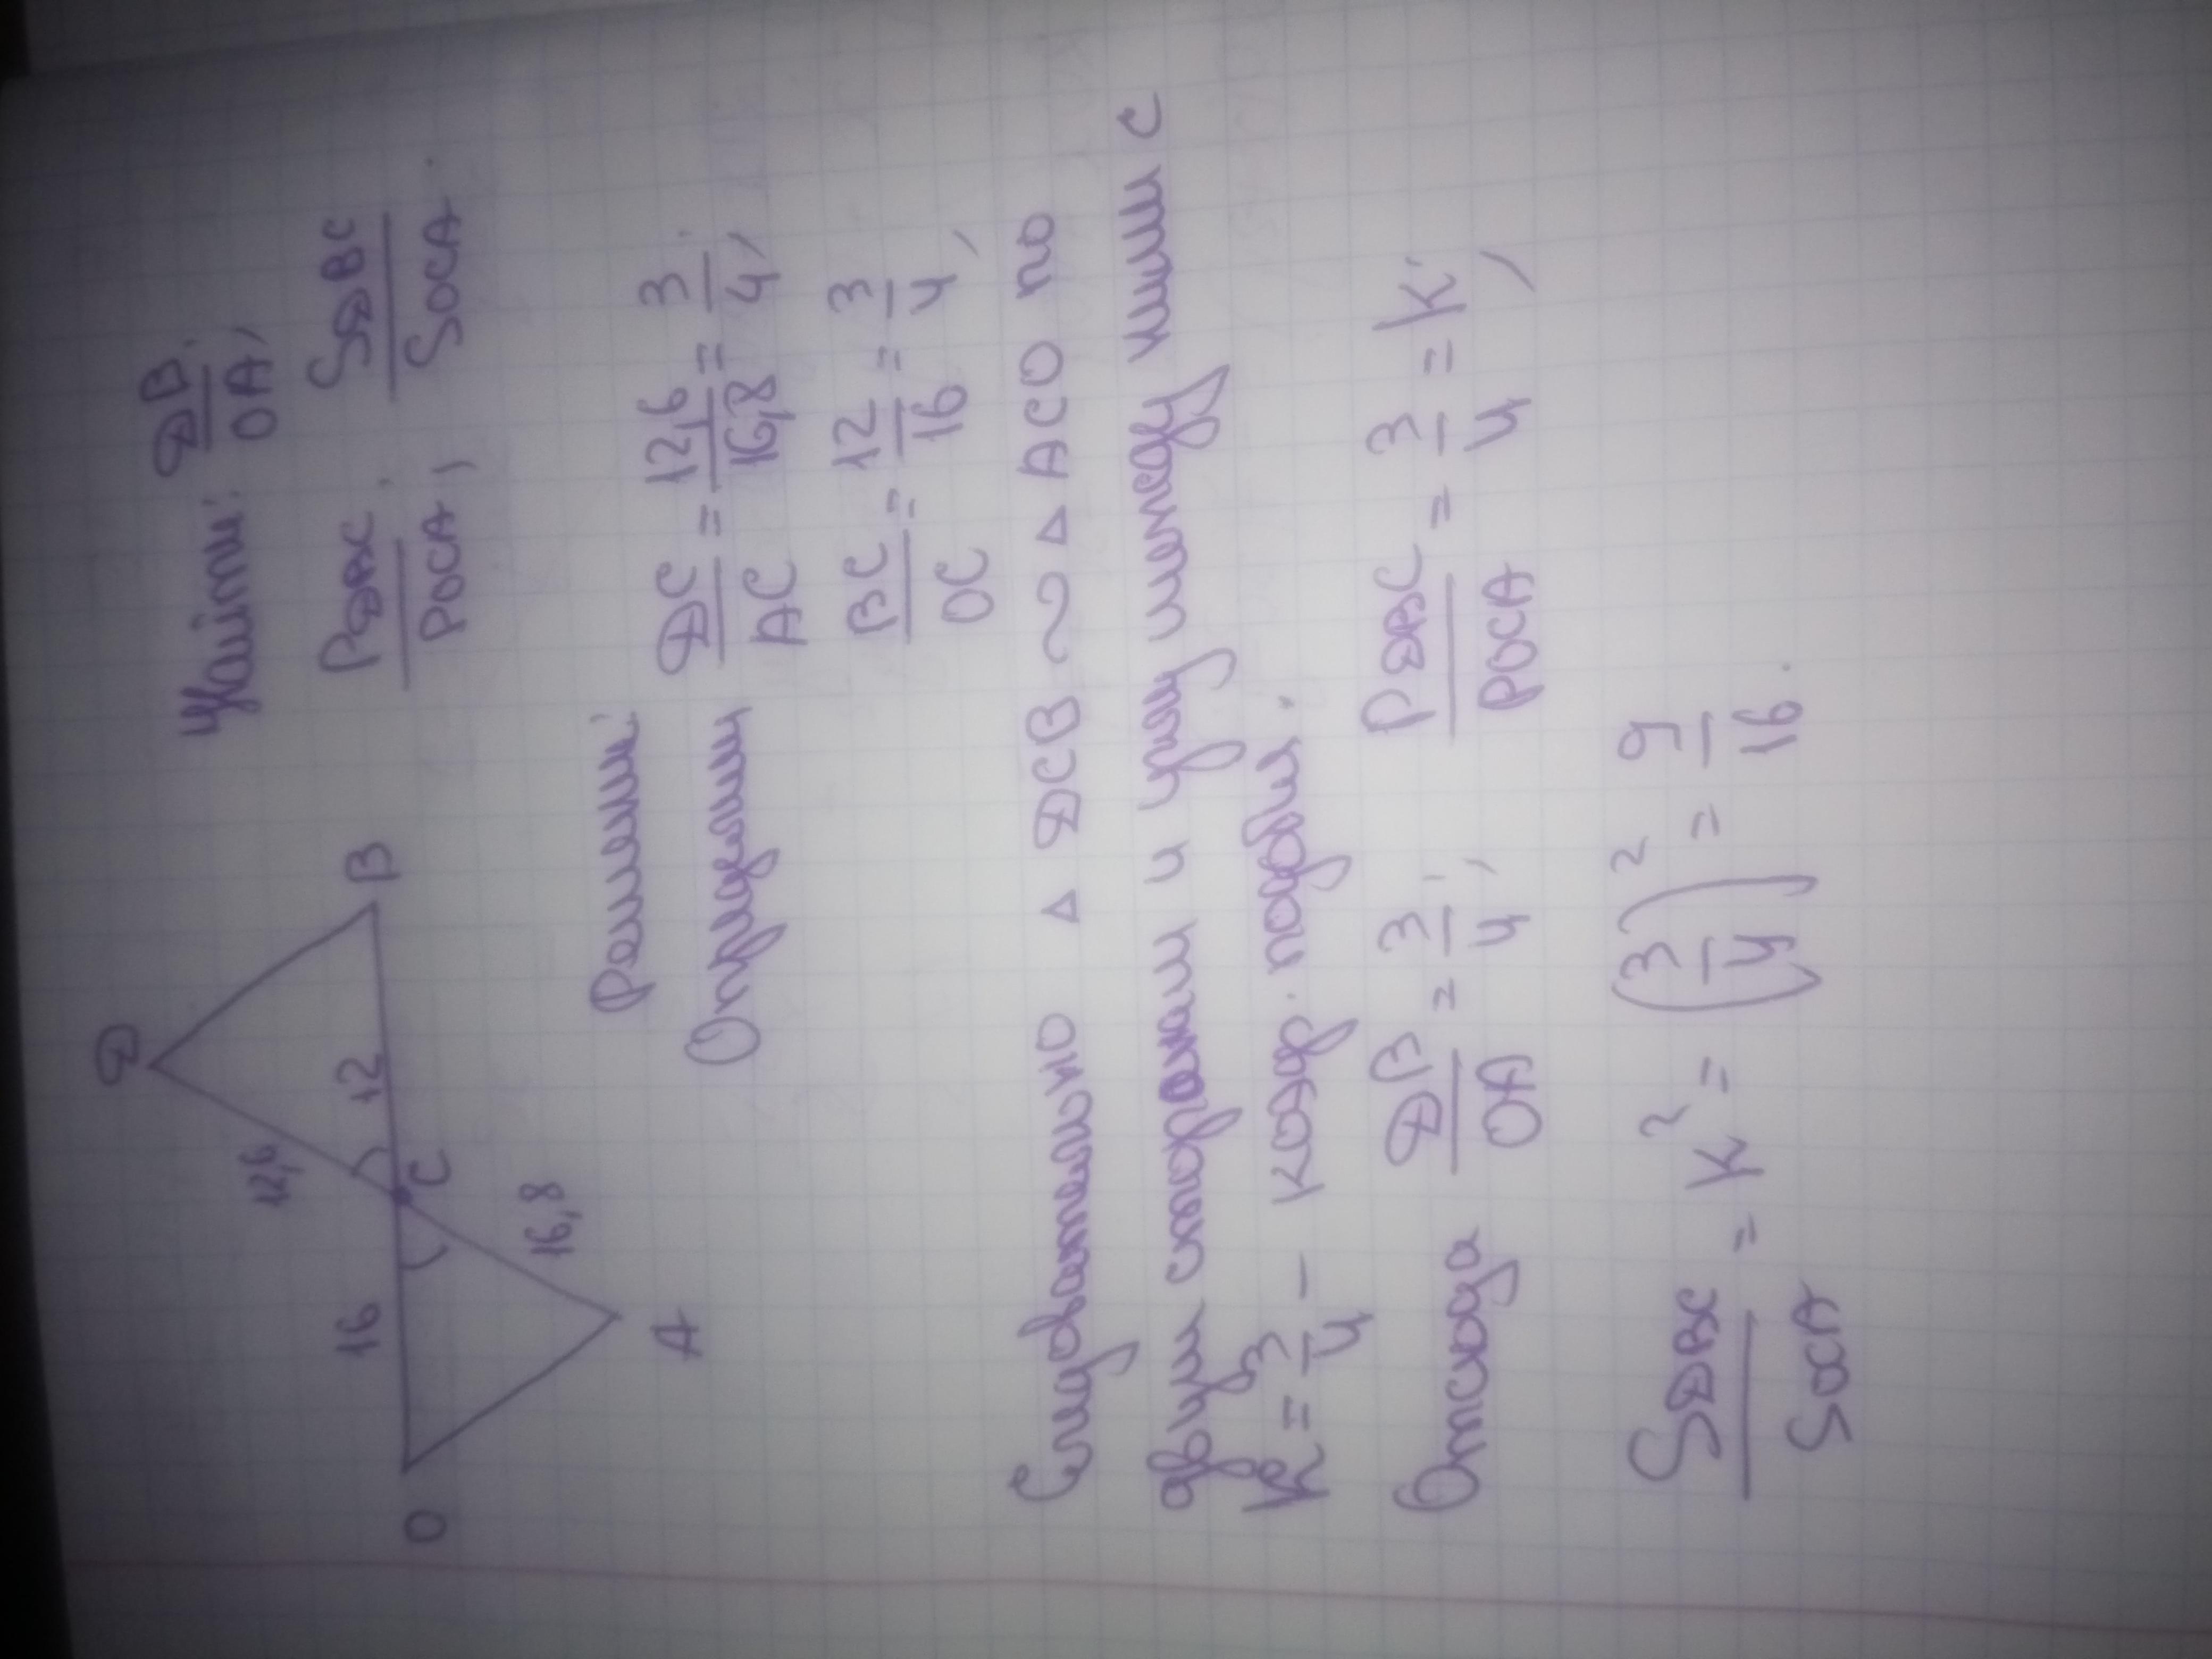 D
B
12
12,6
C
16
16,8
O
A
Найти: DB/OA;
PDBC/POCA; SDBC/SOCA.
Решение:
Определим DC/AC = 12,6/16,8 = 3/4;
BC/OC = 12/16 = 3/4,
Следовательно △ DCB ∾ △ ACO по
двум сторонам и углу между ними с
k = 3/4 – коэф. подоби.
Отсюда DB/OA = 3/4; PDBC/POCA = 3/4 = k;
SDBC/SOCA = k² = (3/4)² = 9/16.